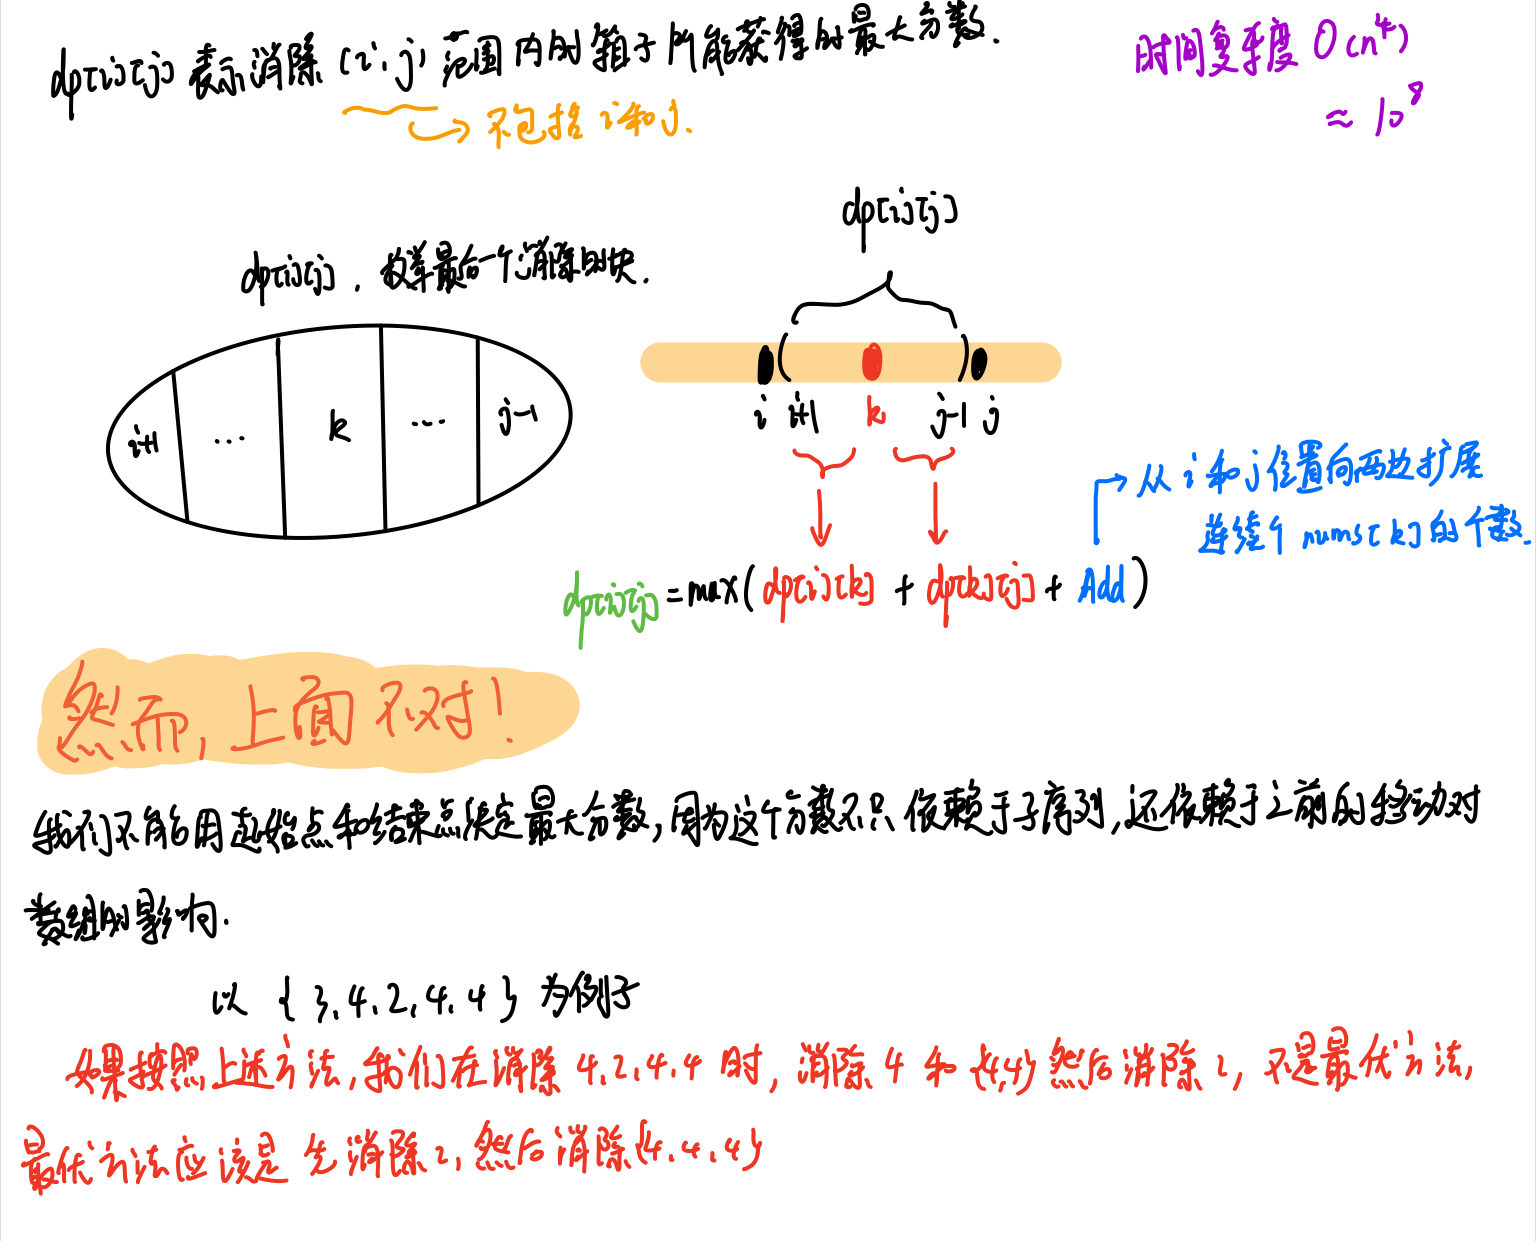 dp[i][j] 表示消除 (i, j) 范围内的箱子所能获得的最大分数.
时间复杂度 O(n⁴)
≈ 10⁸
不包括 i 和 j.
dp[i][j]
dp[i][j], 枚举最后一个消除的块.
i+1 ... k ... j-1
i ( ) j
i i+1 k j-1 j
从 i 和 j 位置向两边扩展
连续个 nums[k] 的个数.
dp[i][j] = max( dp[i][k] + dp[k][j] + Add )
然而, 上面不对!
我们不能用起始点和结束点决定最大分数, 因为这个分数不只依赖于子序列, 还依赖于之前的移动对
数组的影响.
以 { 3, 4, 2, 4, 4 } 为例子
如果按照上述方法, 我们在消除 4, 2, 4, 4 时, 消除 4 和 {4,4} 然后消除 2, 不是最优方法,
最优方法应该是 先消除 2, 然后消除{4, 4, 4}